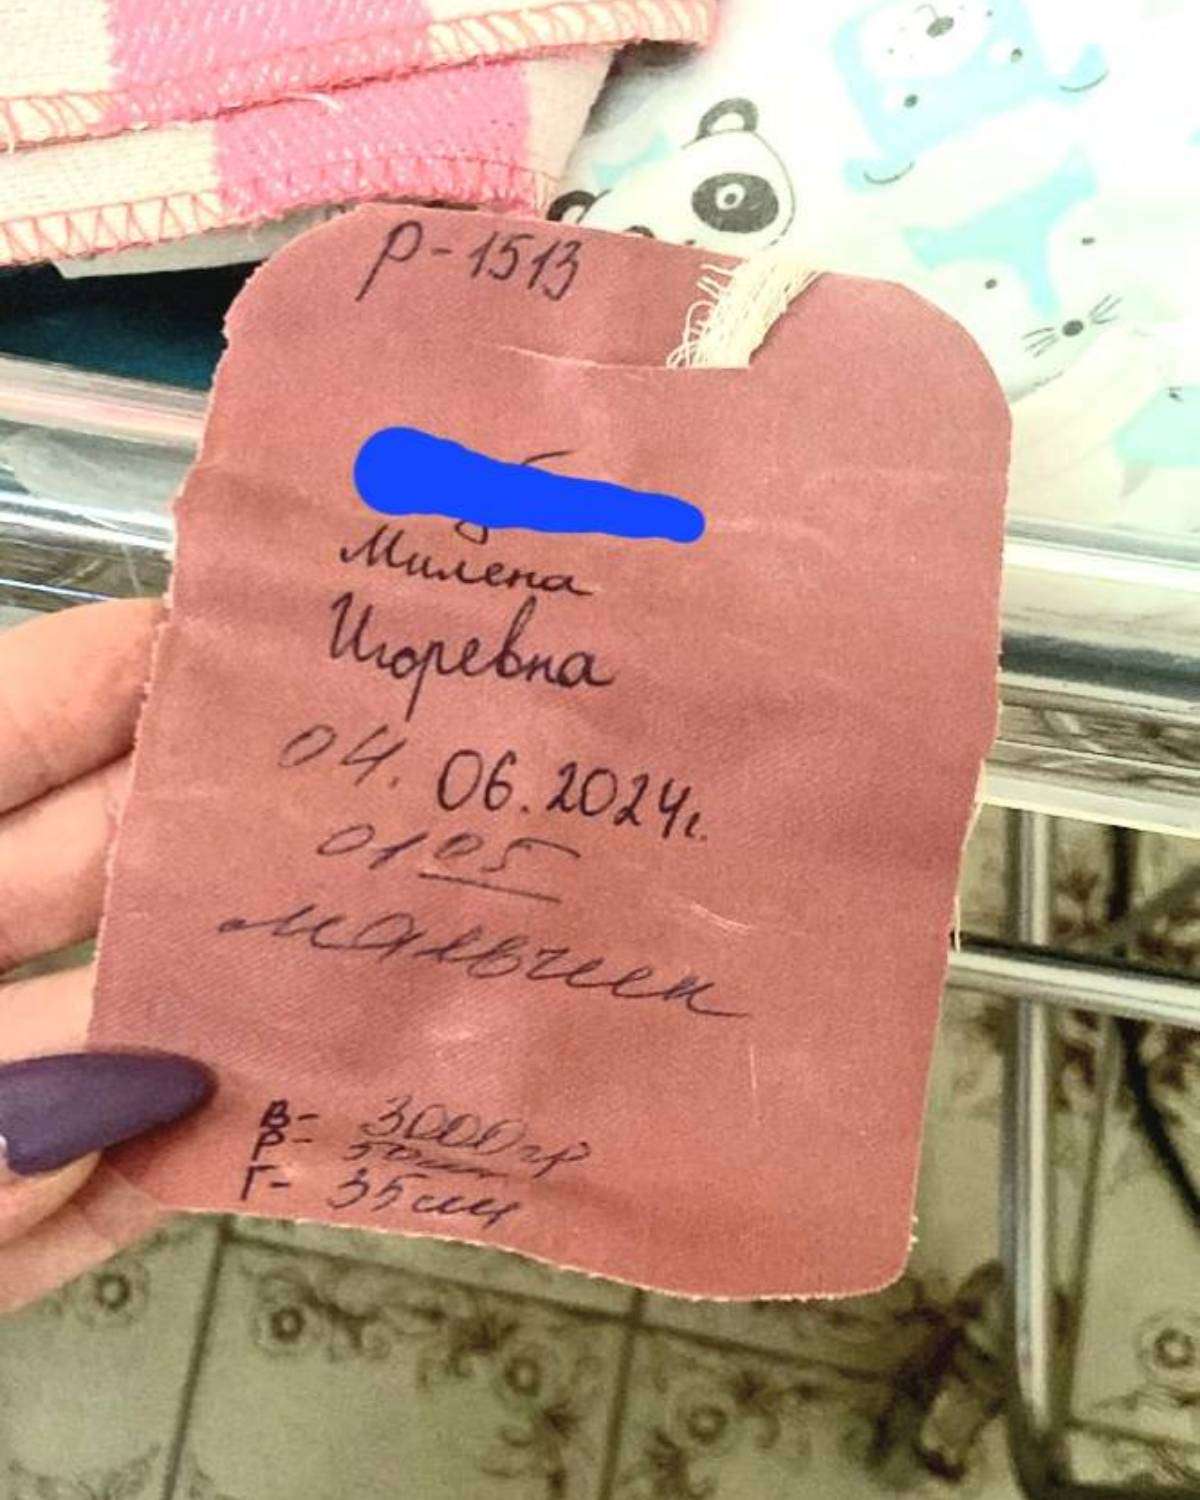 Р-1513
Милена
Игоревна
04. 06. 2024г.
01 05
мальчик
В- 3000гр
Р- 50см
Г- 35см